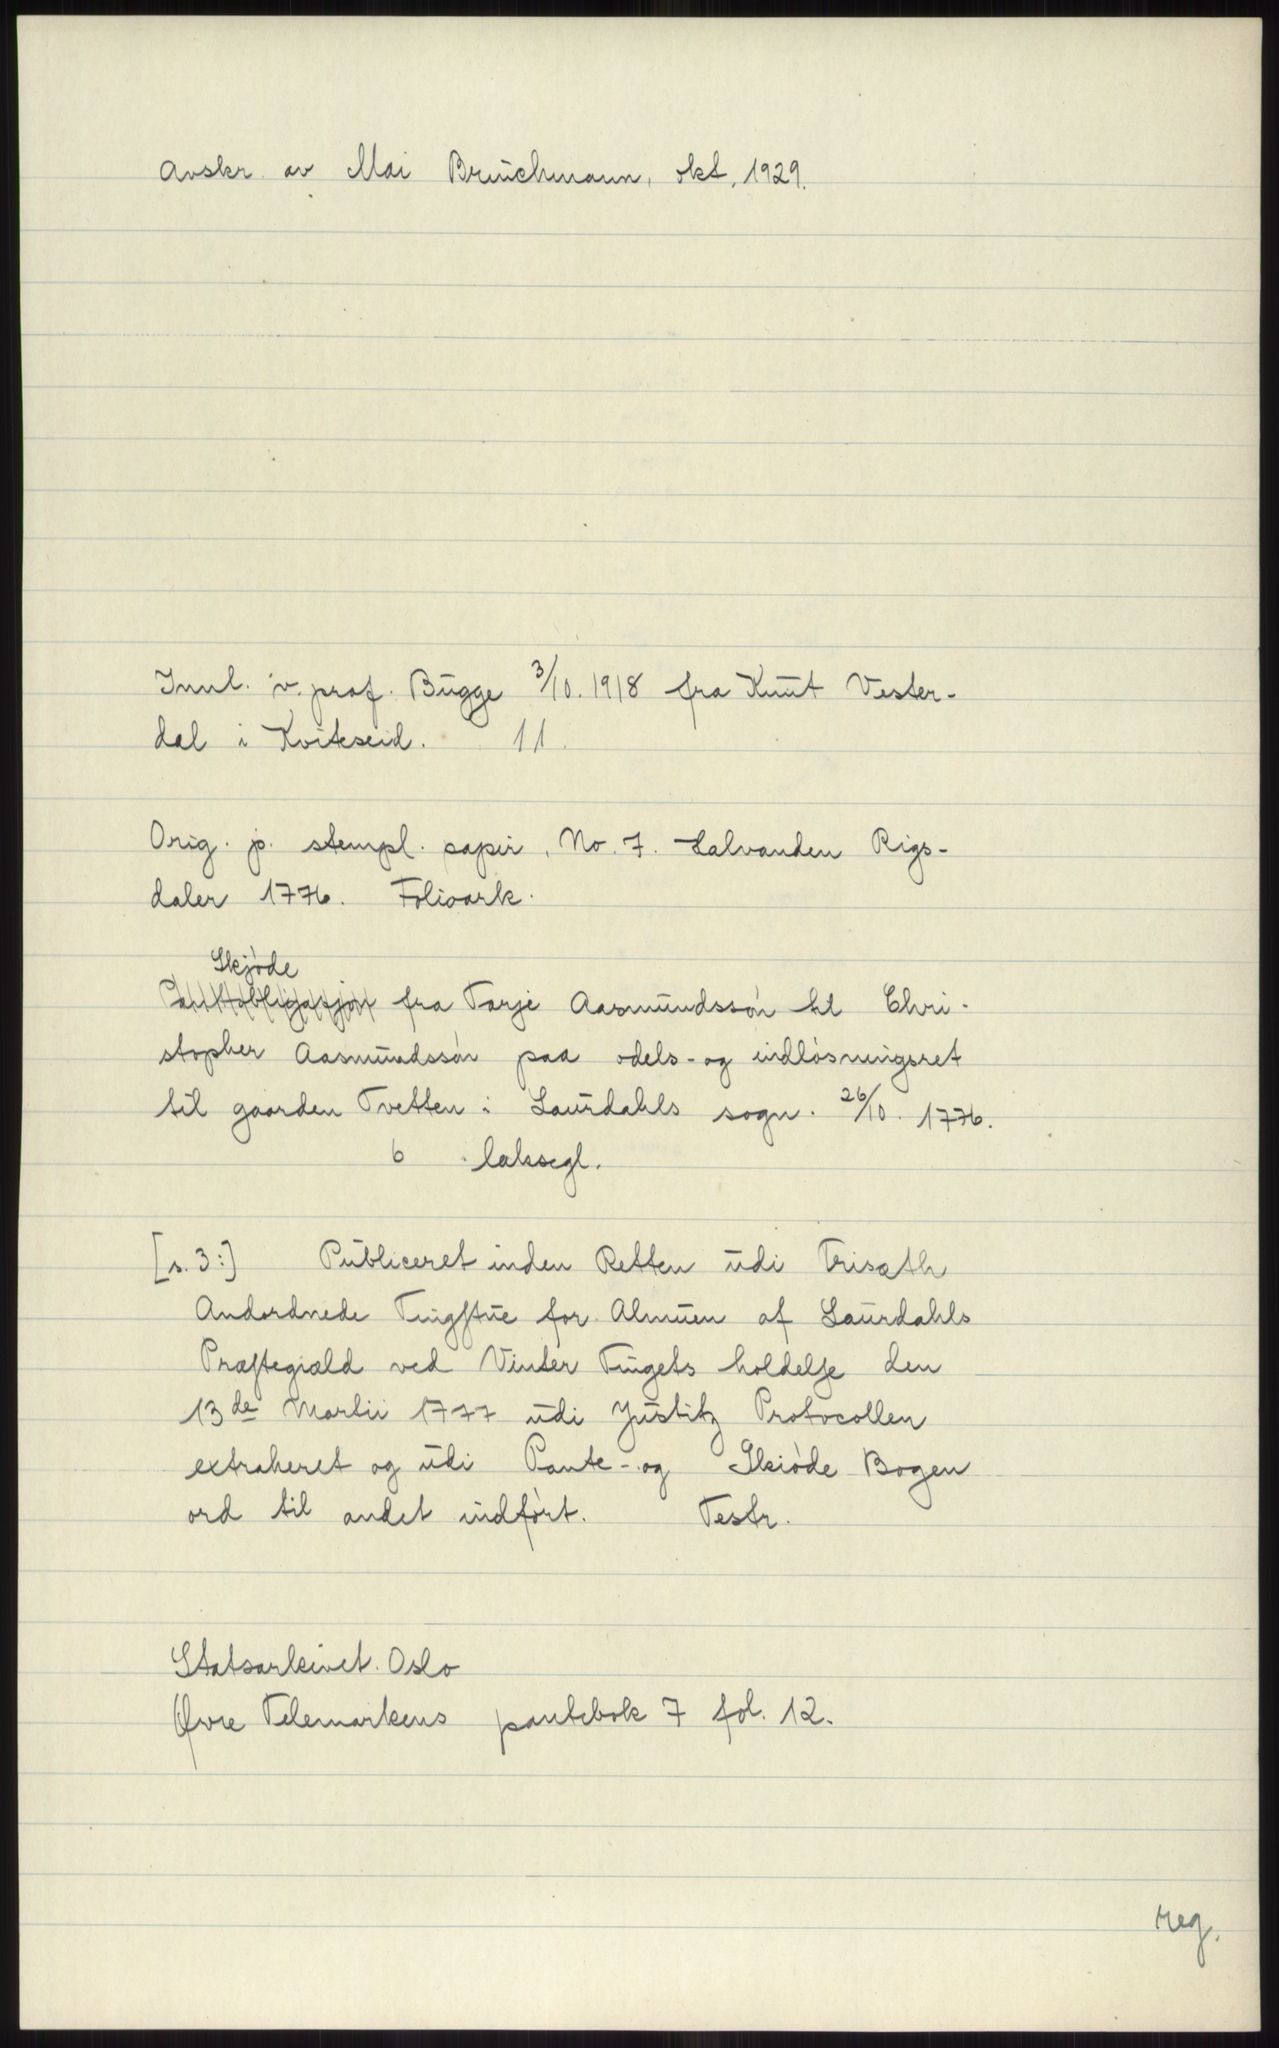 Avskr. av Mai Bruichmann, okt. 1929.
Innl. v. prof. Bugge 3/10. 1918 fra Knut Vester-
dal i Kviteseid. 11.
Orig. p. stempl. papir, No. 7. Halvanden Rigs-
daler 1776. Folioark.
Skjøde
Panttobligasjon fra Tarje Aasmundssøn til Chri-
stopher Aasmundssøn paa odels- og indløsningsret
til gaarden Tvetten i Laurdahls sogn. 26/10. 1776.
6 laksegl.
[s. 3:] Publiceret inden Retten udi Trisæth
Andordnede Tingstue for Almuen af Laurdahls
Præstegiæld ved Vinter Tingets holdelse den
13de Martii 1777 udi Justitz Protocollen
extraheret og udi Pante- og Skiøde Bogen
ord til andet indført. Testr.
Statsarkivet. Oslo
Øvre Telemarkens pantebok 7 fol. 12.
reg.